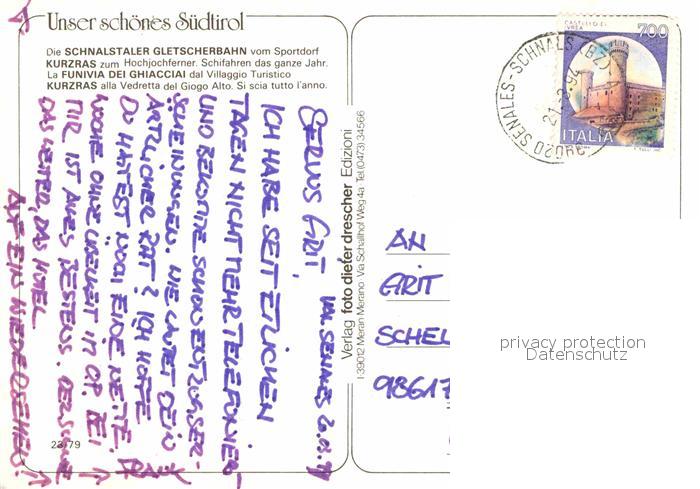 Unser schönes Südtirol
Die SCHNALSTALER GLETSCHERBAHN vom Sportdorf
KURZRAS zum Hochjochferner. Schifahren das ganze Jahr.
La FUNIVIA DEI GHIACCIAI dal Villaggio Turistico
KURZRAS alla Vedretta del Giogo Alto. Si scia tutto l'anno.
VAL SENALES
SERVUS GRIT,
ICH HABE SEIT ETLICHEN
TAGEN NICHT MEHR TELEFONIERT
UND BEKOMME SCHON ENTZUGSER-
SCHEINUNGEN. WIE LAUTET DEIN
ÄRTLICHER RAT? ICH HOFFE
DU HATTEST NOCH EINE NETTE
WOCHE OHNE IN OP. BEI
MIR IST ALLES BESTENS. DER SCHNEE
DAS WETTER, DAS HOTEL.
AUF EIN WIEDERSEHEN!
23/79
Verlag foto dieter drescher Edizioni
I-39012 Meran Merano · Via Schallhof Weg 4a Tel. (0473) 34566
CASTELLO DI
IVREA
700
ITALIA
39020 SENALES - SCHNALS (BZ)
AN
GRIT
SCHEL
98617
privacy protection
Datenschutz